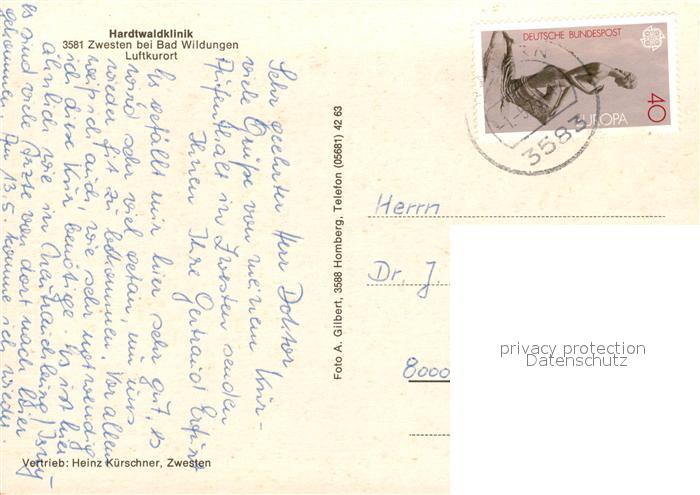 Hardtwaldklinik
3581 Zwesten bei Bad Wildungen
Luftkurort
Sehr geehrter Herr Doktor
viele Grüße von meinem Kur-
Aufenthalt in Zwesten senden
Ihnen Ihre Gertraid
Es gefällt mir hier sehr gut, es
wird sehr viel getan, um uns
wieder fit zu bekommen. Vor allem
auch, wie sehr notwendig
ich diese Kur benötige. Es ist hier
ähnlich wie in
es sind viele Ärzte von dort nach hier
gekommen. Am 13.5. komme ich wieder.
Vertrieb: Heinz Kürschner, Zwesten
Foto A. Gilbert, 3588 Homberg, Telefon (05681) 42 63
DEUTSCHE BUNDESPOST
EUROPA
40
3583
Herrn
Dr. J.
8000
privacy protection
Datenschutz